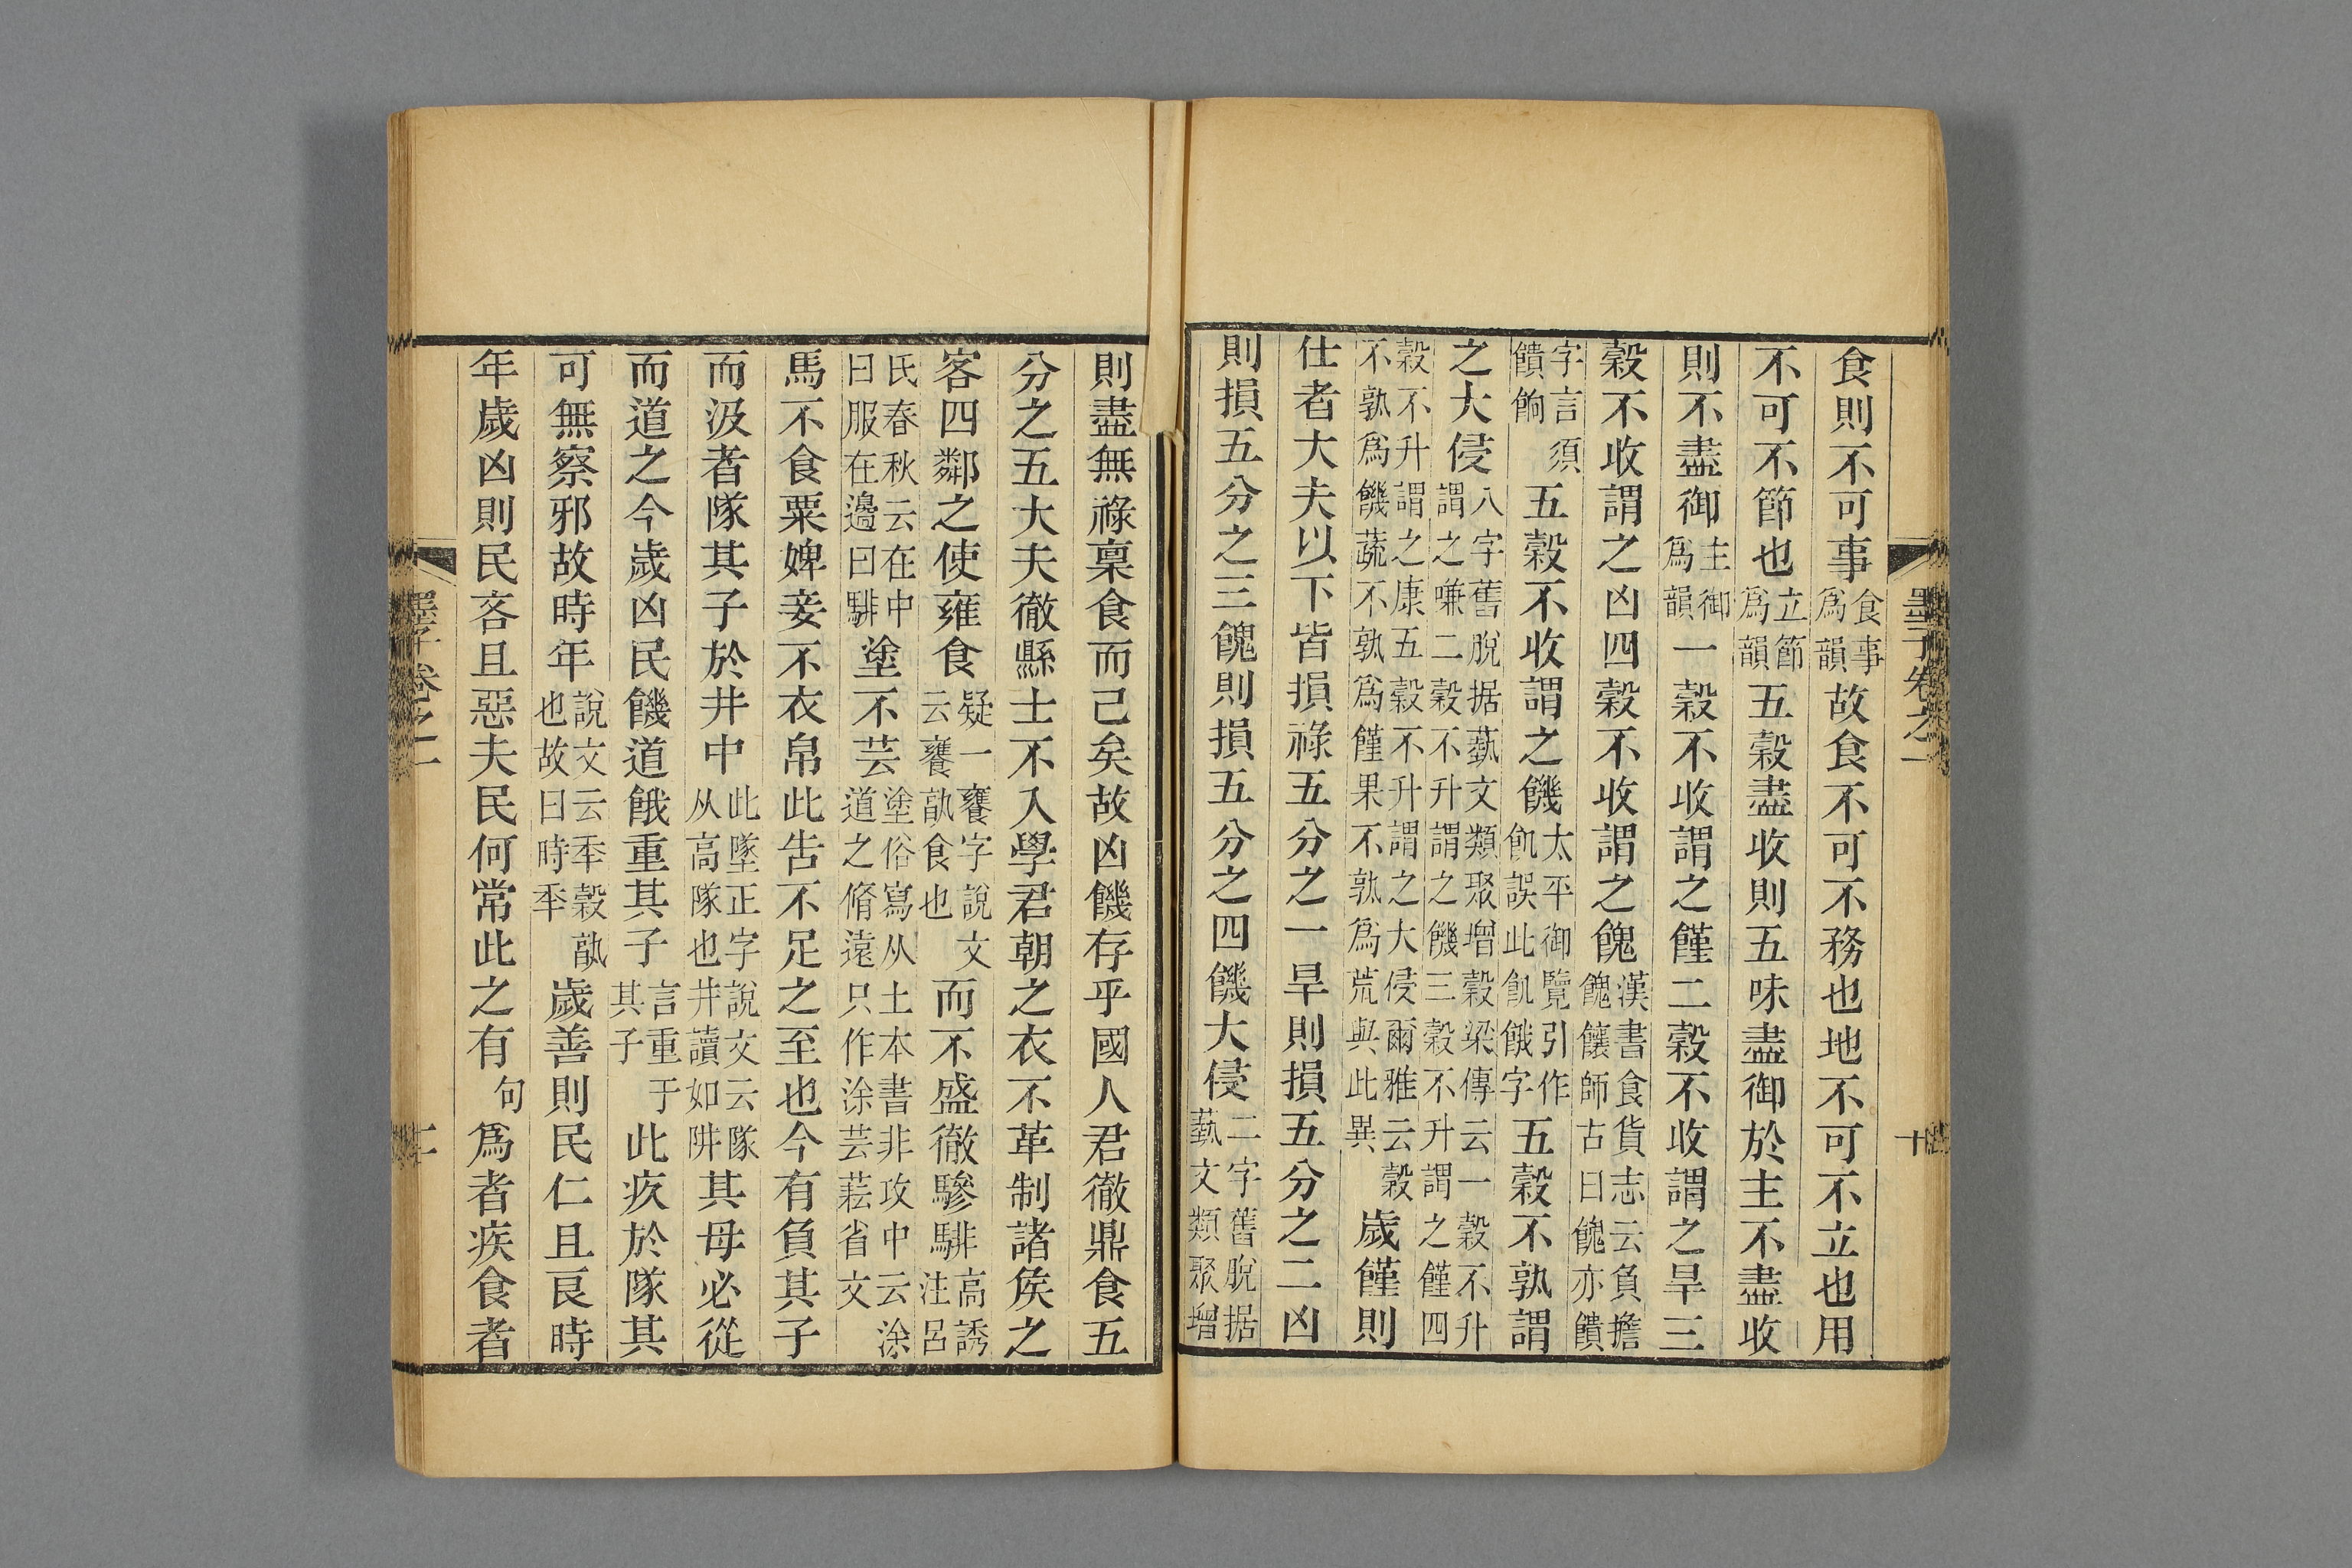 墨子卷之一
十
食則不可事食事爲韻故食不可不務也地不可不立也用
不可不節也立節爲韻五穀盡收則五味盡御於主不盡收
則不盡御主御爲韻一穀不收謂之饉二穀不收謂之旱三
穀不收謂之凶四穀不收謂之餽漢書食貨志云負擔餽饟師古曰餽亦饋
字言須饋餉五穀不收謂之饑太平御覽引作飢誤此飢餓字五穀不孰謂
之大侵八字舊脫据蓺文類聚增穀梁傳云一穀不升謂之嗛二穀不升謂之饑三穀不升謂之饉四
穀不升謂之康五穀不升謂之大侵爾雅云穀不孰爲饑蔬不孰爲饉果不孰爲荒與此異歲饉則
仕者大夫以下皆損祿五分之一旱則損五分之二凶
則損五分之三餽則損五分之四饑大侵二字舊脫据蓺文類聚增
則盡無祿稟食而已矣故凶饑存乎國人君徹鼎食五
分之五大夫徹縣士不入學君朝之衣不革制諸矦之
客四鄰之使雍食疑一饔字說文云饔孰食也而不盛徹驂騑高誘注呂
氏春秋云在中曰服在邊曰騑塗不芸塗俗寫从土本書非攻中云涂道之脩遠只作涂芸蕓省文
馬不食粟婢妾不衣帛此告不足之至也今有負其子
而汲者隊其子於井中此墜正字說文云隊从高隊也井讀如阱其母必從
而道之今歲凶民饑道餓重其子言重于其子此疚於隊其
可無察邪故時年說文云秊穀孰也故曰時秊歲善則民仁且良時
年歲凶則民吝且惡夫民何常此之有句爲者疾食者
墨子卷之一
十一